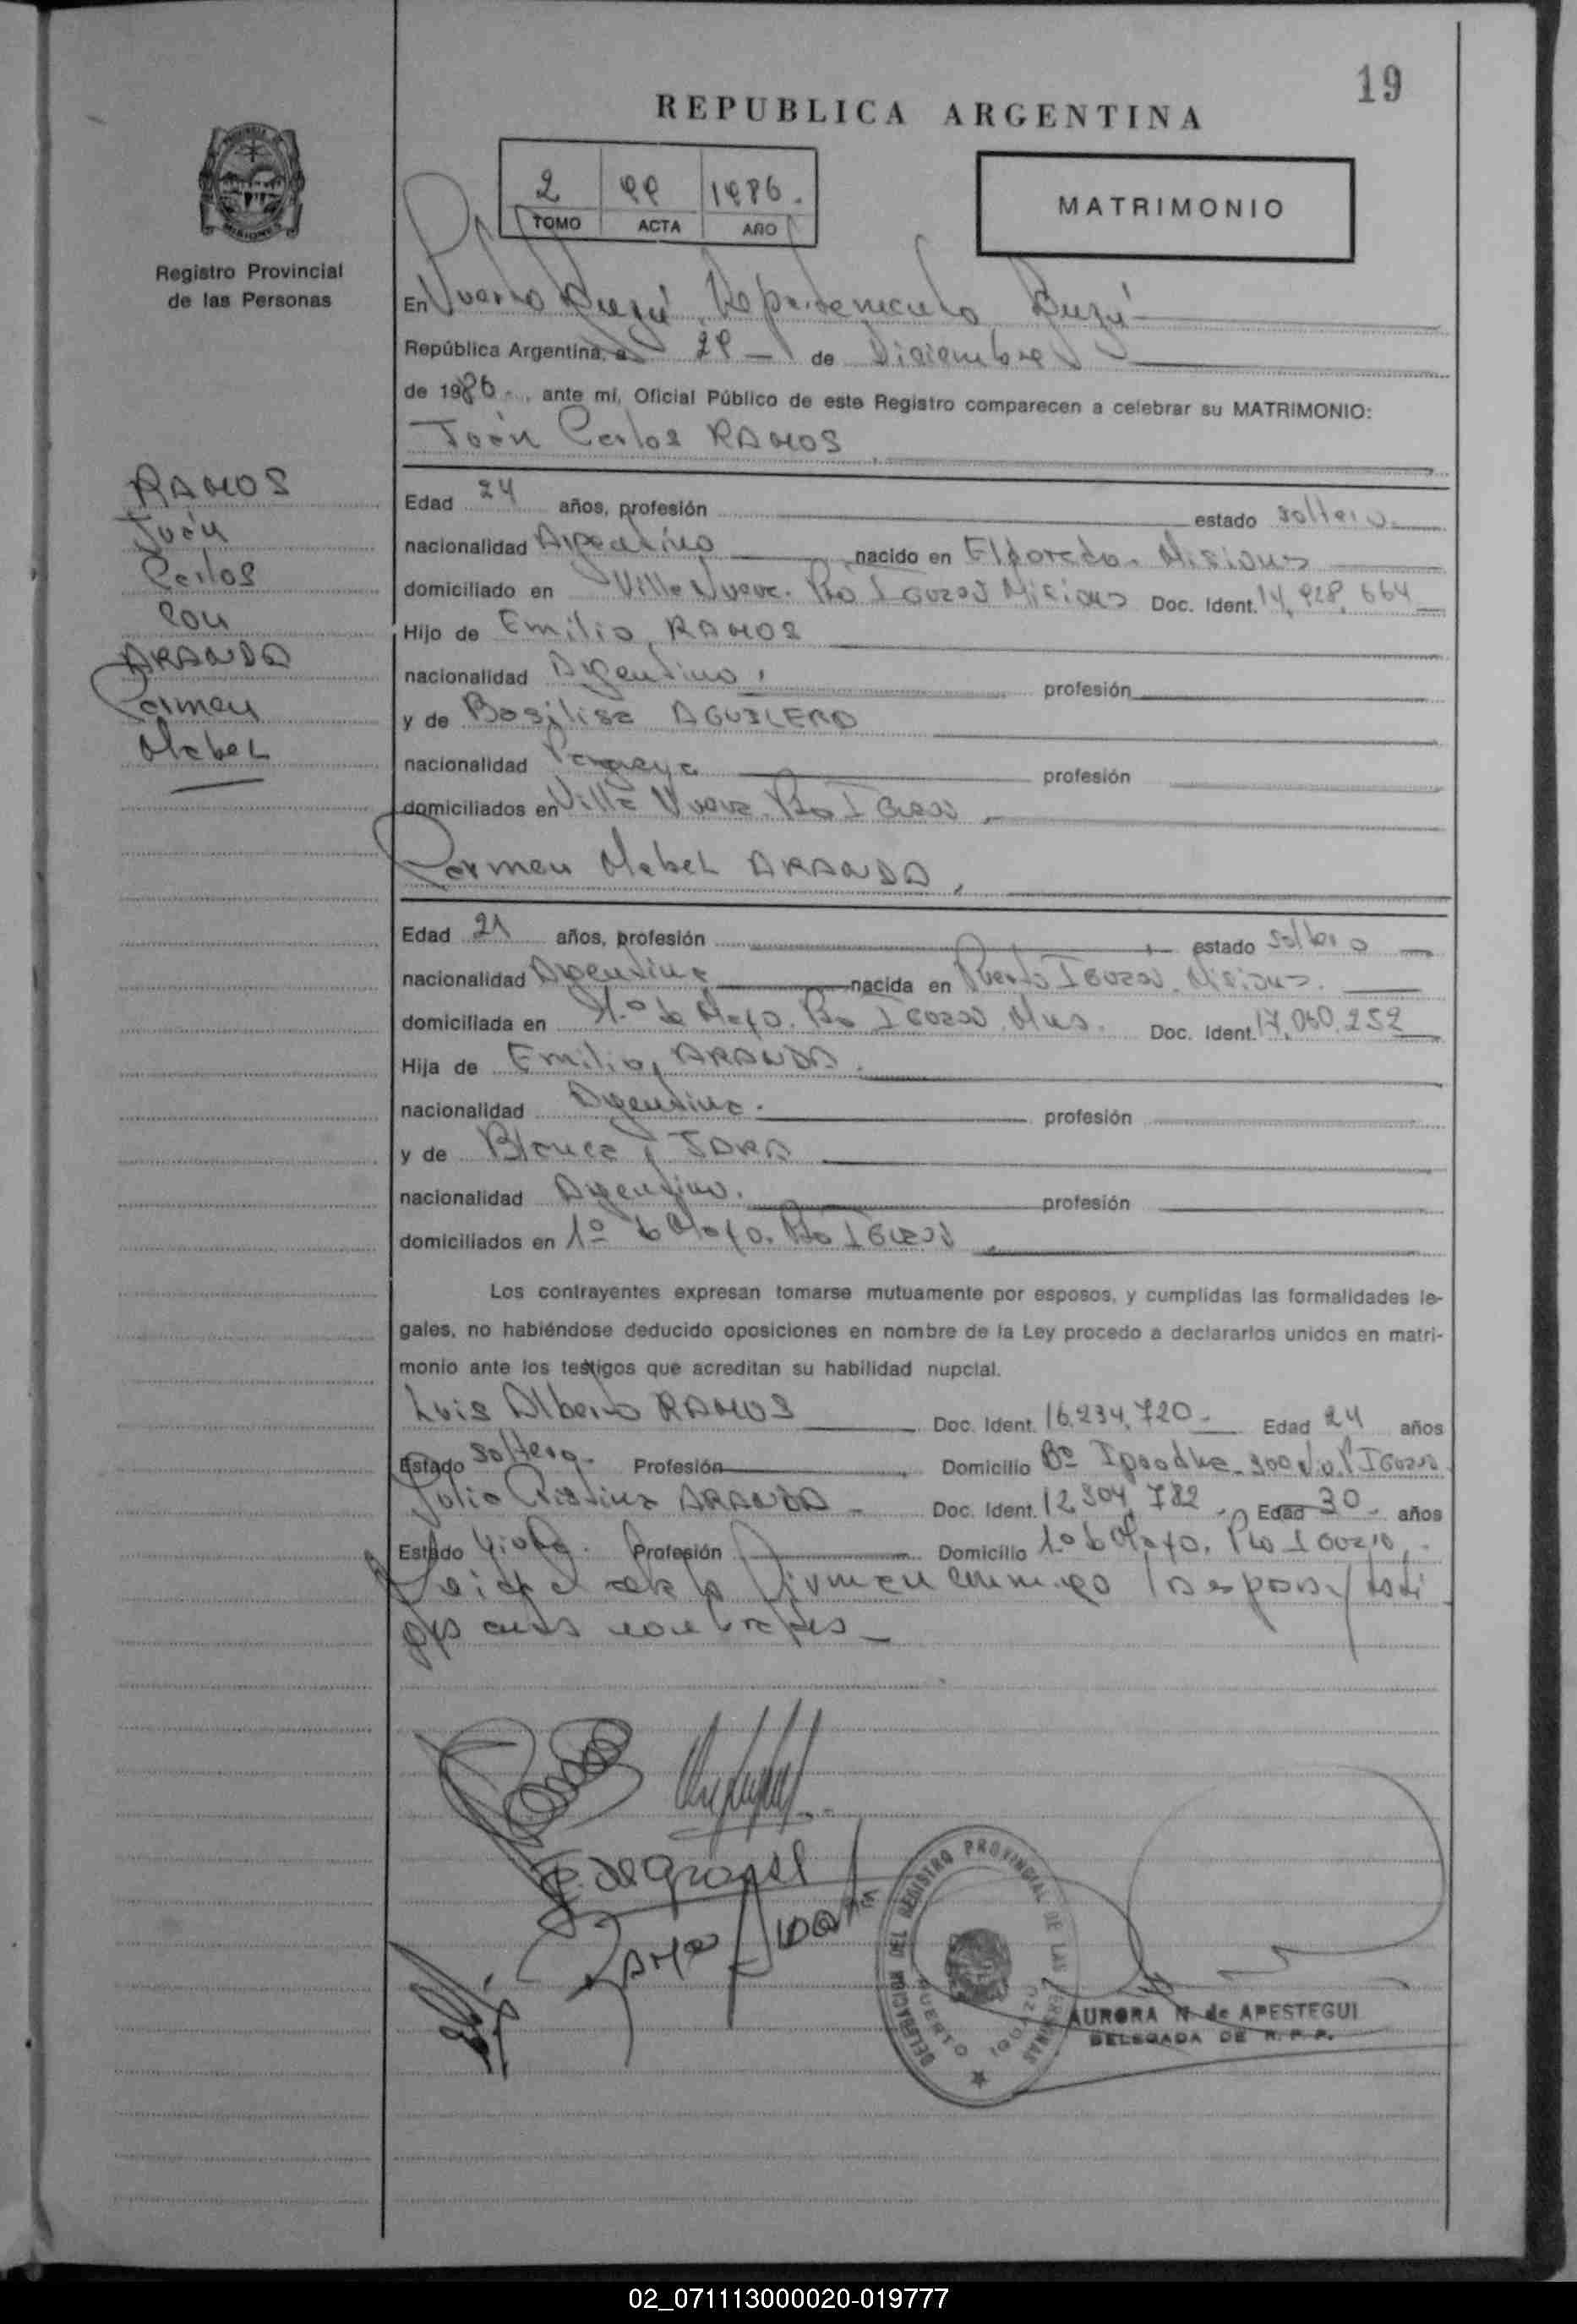 19
REPUBLICA ARGENTINA
2 99 1986.
TOMO ACTA AÑO
MATRIMONIO
MISIONES
Registro Provincial
de las Personas
En Puerto Iguazú Departamento Iguazú
República Argentina, a 29 de Diciembre
de 1986., ante mí, Oficial Público de este Registro comparecen a celebrar su MATRIMONIO:
Juán Carlos RAMOS
RAMOS
Juán
Carlos
con
ARANDA
Carmen
Mabel
Edad 24 años, profesión estado soltero.
nacionalidad Argentino nacido en Eldorado. Misiones
domiciliado en Villa Nueva. Pto IGUAZÚ Misiones Doc. Ident. 14.928.664
Hijo de Emilio RAMOS
nacionalidad Argentino profesión
y de Basilisa AGUILERA
nacionalidad profesión
domiciliados en Villa Nueva. Pto IGUAZÚ
Carmen Mabel ARANDA,
Edad 21 años, profesión estado
nacionalidad Argentina nacida en Puerto IGUAZÚ. Misiones.
domiciliada en 1º de Mayo. Pto IGUAZÚ. Mnes. Doc. Ident. 17.060.252
Hija de Emilio, ARANDA.
nacionalidad profesión
y de Blanca, JARA
nacionalidad profesión
domiciliados en 1º de Mayo. Pto IGUAZÚ
Los contrayentes expresan tomarse mutuamente por esposos, y cumplidas las formalidades le-
gales, no habiéndose deducido oposiciones en nombre de la Ley procedo a declararlos unidos en matri-
monio ante los testigos que acreditan su habilidad nupcial.
Luis Alberto RAMOS Doc. Ident. 16.234.720. Edad 24 años
Estado soltero. Profesión Domicilio Bº
Julia Cristina ARANDA Doc. Ident. 12.304.782 Edad 30 años
Estado Profesión Domicilio 1º de Mayo. Pto IGUAZÚ
Leida el acta la firman conmigo los esposos y testi
gos antes nombrados
DELEGACION DEL REGISTRO PROVINCIAL DE LAS PERSONAS
PUERTO IGUAZU
AURORA N. de APESTEGUI
DELEGADA DE R. P. P.
02_071113000020-019777